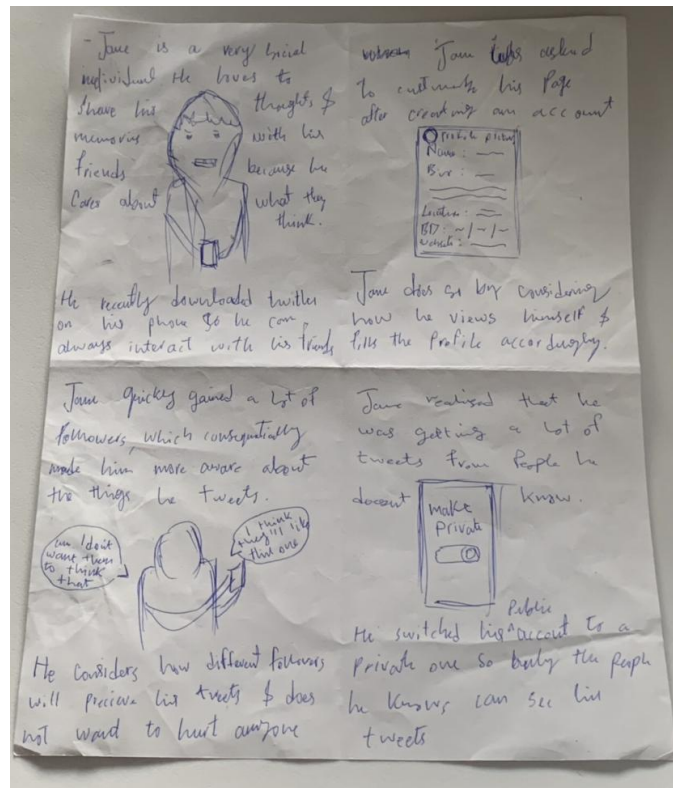 Jane is a very social
individual. He loves to
share his thoughts &
memories with his
friends because he
cares about what they
think.
He recently downloaded twitter
on his phone so he can
always interact with his friends
Jane was asked
to customize his Page
after creating an account
Profile picture
Name:
Bio:
Location:
BD: ~/~/~
website:
Jane does so by considering
how he views himself &
fills the Profile accordingly.
Jane quickly gained a lot of
followers, which consequatially
made him more aware about
the things he tweets.
I don't
want them
to think
that
I think
they'll like
this one
He considers how different followers
will precieve his tweets & does
not want to hurt anyone
Jane realised that he
was getting a lot of
tweets from People he
doesnt know.
make
Private
Public
He switched his account to a
Private one so the People
he knows can see his
tweets